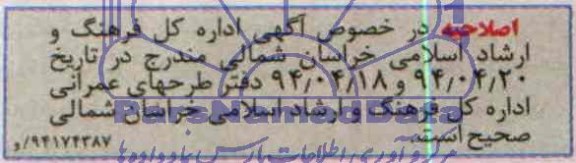 اصلاحیه در خصوص آگهی اداره کل فرهنگ و
ارشاد اسلامی خراسان شمالی مندرج در تاریخ
۹۴٫۰۴٫۲۰ و ۹۴٫۰۴٫۱۸ دفتر طرحهای عمرانی
اداره کل فرهنگ و ارشاد اسلامی خراسان شمالی
صحیح است.
۹۴۱۷۴۳۸۷/و